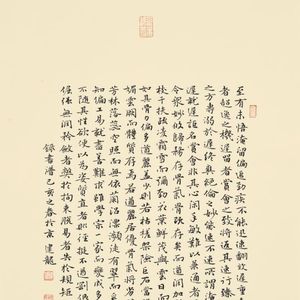 至有未悟淹留偏追勁疾不能迅速翻效遲重夫勁速
者超逸之機遲留者賞會之致將反其速行臻會美
之方專溺於遲終爽絕倫之妙能速不速所謂淹留因
遲就遲詎名賞會非其心閑手敏難以兼通者焉假
令衆妙攸歸務存骨氣骨既存矣而遒潤加之亦猶
枝幹扶疏凌霜雪而彌勁花葉鮮茂與雲日而相暉
如其骨力偏多遒麗蓋少則若枯槎架險巨石當路雖妍
媚雲闕而體質存焉若遒麗居優骨氣將劣譬夫
芳林落蕊空照灼而無依蘭沼漂萍徒青翠而奚托是
知偏工易就盡善難求雖學宗一家而變成多體莫
不隨其性欲便以為姿質直者則徑侹不遒剛佷者又
倔強無潤矜斂者弊於拘束脫易者失於規矩
錄書譜己亥之春於京 建龍